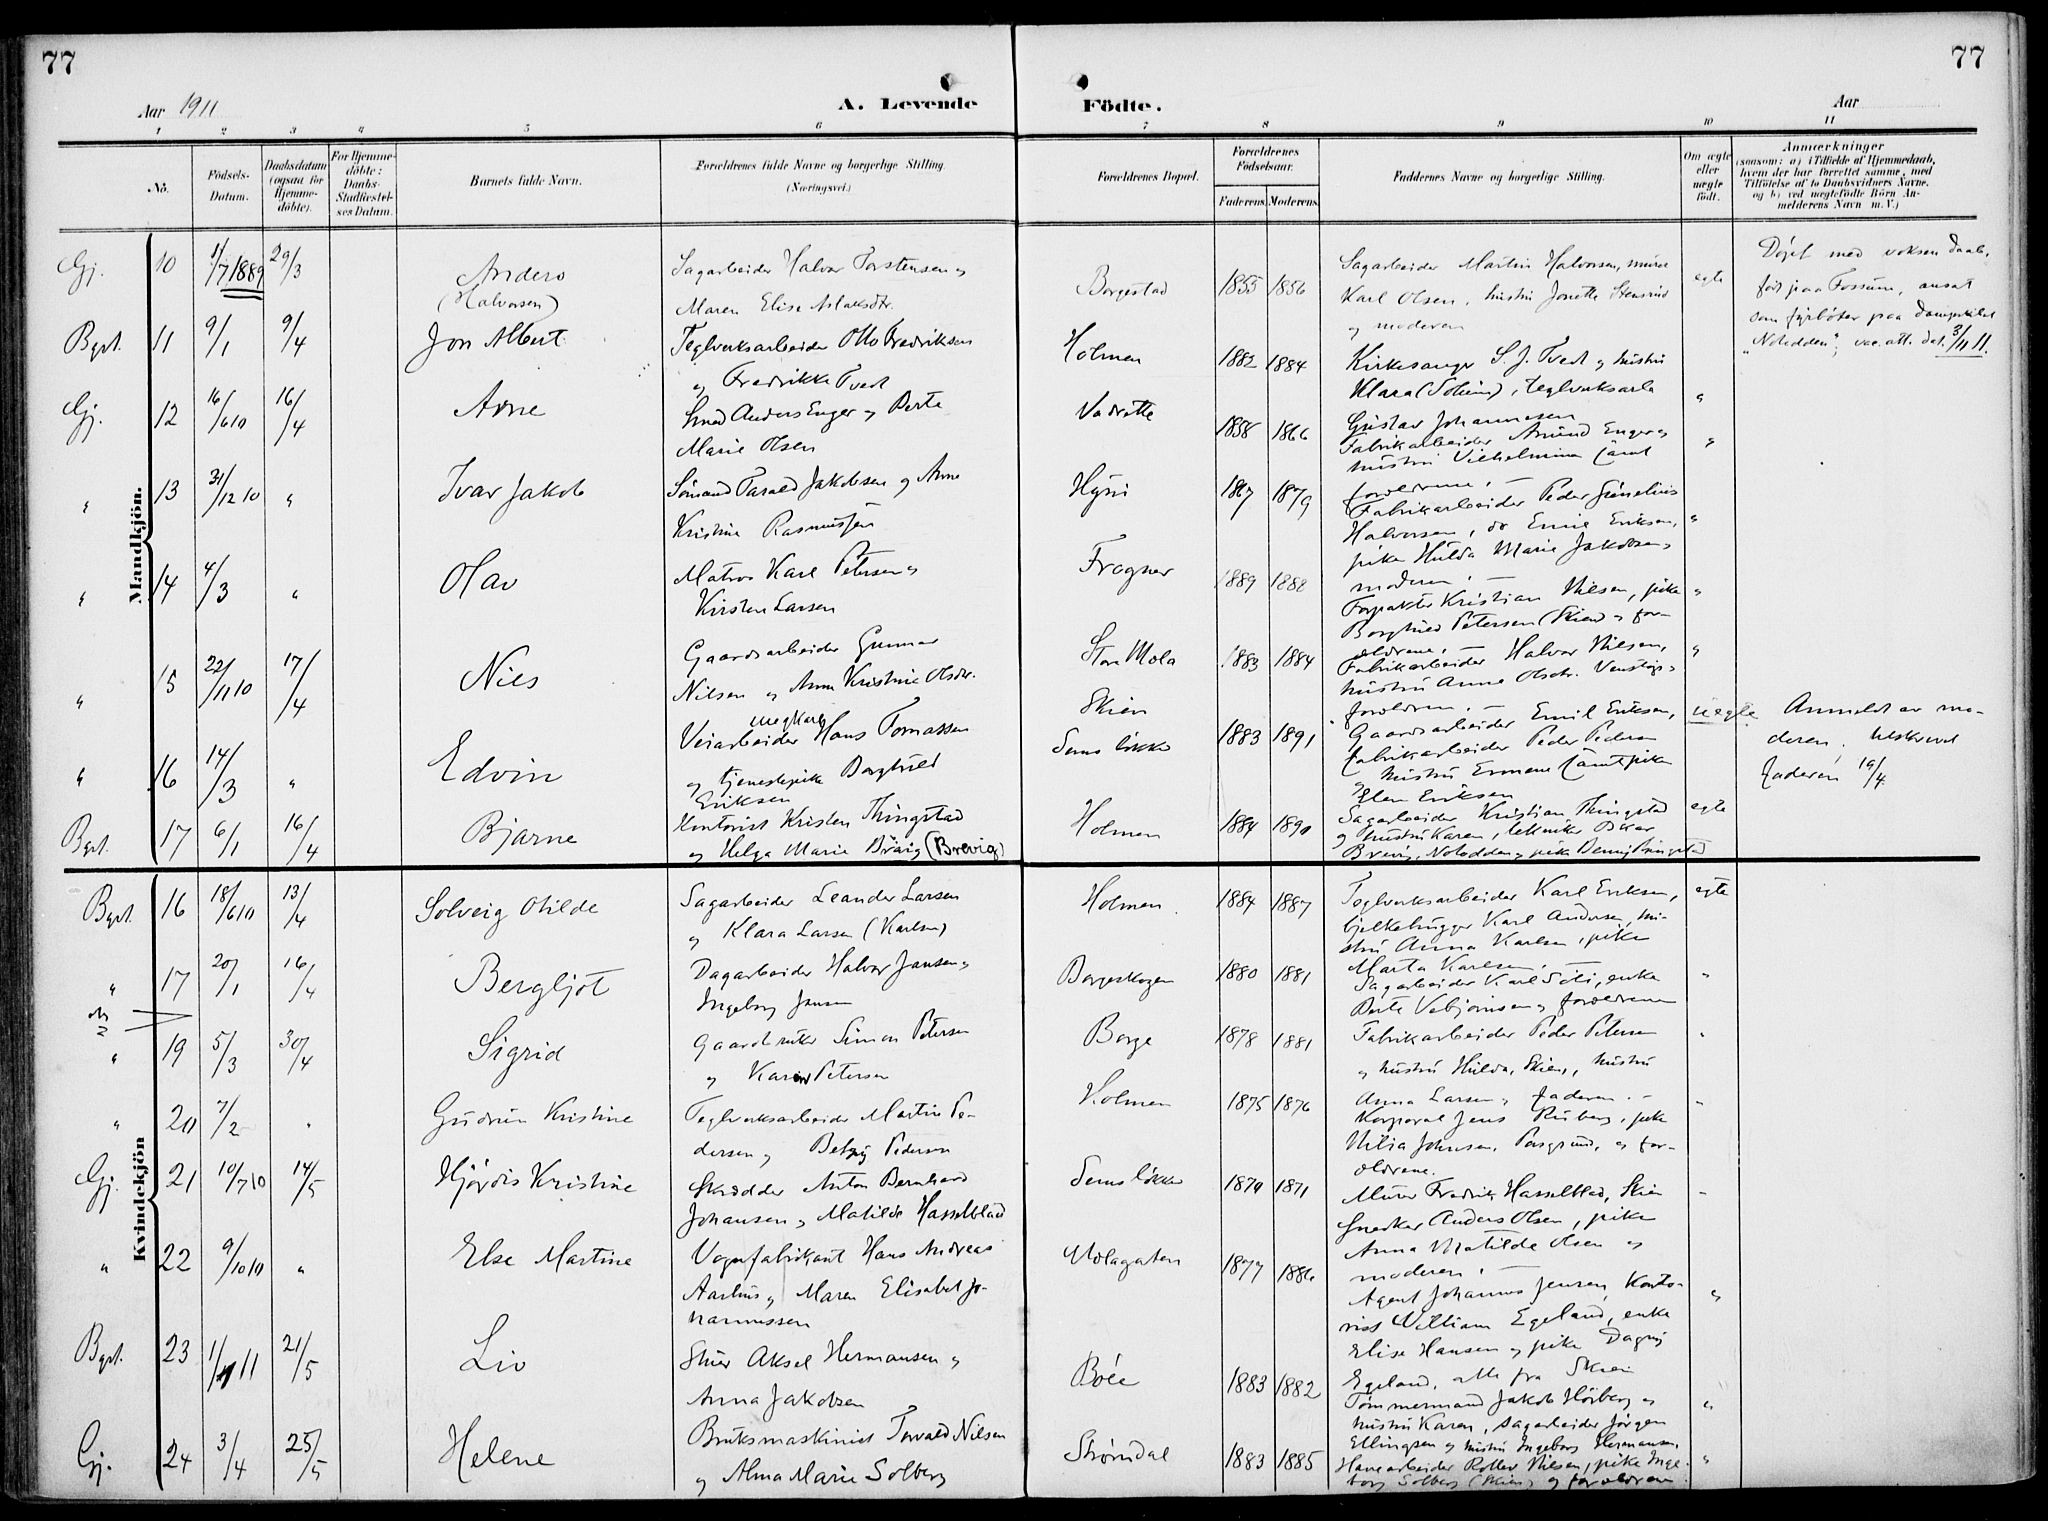 77
77
Aar 1911
A. Levende
Födte.
Aar
1 2 3 4 5 6 7 8 9 10 11
Nö.
Födsels-Datum.
Daabsdatum (ogsaa for Hjemme-döbte).
For Hjemme-döbte: Daabs-Stadfæstel-ses Datum.
Barnets fulde Navn.
Forældrenes fulde Navne og borgerlige Stilling. (Næringsvei.)
Forældrenes Bopæl.
Forældrenes Födselsaar.
Faderens. Moderens.
Faddernes Navne og borgerlige Stilling.
Om ægte eller uægte födt.
Anmærkninger (saasom: a) i Tilfælde af Hjemmedaab, hvem der har forrettet samme, med Tilföielse af to Daabsvidners Navne, og b) ved uægtefödte Börn An-melderens Navn m. V.)
Mandkjön.
Gj. 10 1/7 1889 29/3
Anders
(Halvorsen)
Sagarbeider Halvor Torstensen og
Maren Elise Aslaksdtr.
Borgestad
1855 1856
Sagarbeider Martin Halvorsen, murer
Karl Olsen, hustru Jonette Stensrud
og moderen
egte
Döpt med voksen daab,
född paa Fossum, ansat
som fyrböter paa dampskibet
"Notodden", vac. att. dat. 3/11 11.
Bgst. 11 9/1 9/4
Jon Albert
Teglverksarbeider Otto Fredriksen
og Fredrikke Tvedt
Holmen
1882 1884
Kirkesanger S. J. Tvedt og hustru
Klara (Solum), teglverksarb.
Gustav Johannesen
"
Gj. 12 16/6 10 16/4
Arne
Smed Anders Enger og Berte
Marie Olsen
Vadrette
1858 1866
Fabrikarbeider Amund Enger og
hustru Vilhelmina samt
foreldrene. —
"
" 13 31/12 10 "
Ivar Jakob
Sömand Tarald Jakobsen og Anne
Kristine Rasmussen
Hyni
1867 1879
Fabrikarbeider Peder Gunelius
Halvorsen, do Emil Eriksen,
pike Hulda Marie Jakobsen og
moderen. —
"
" 14 4/3 "
Olav
Matros Karl Petersen og
Kirsten Larsen
Frogner
1889 1888
Forpakter Kristian Nilsen, pike
Borghild Petersen (Skien) og for-
eldrene. —
"
" 15 22/11 10 17/4
Nils
Gaardsarbeider Gunnar
Nilsen og Anne Kristine Olsdtr.
Store Mæla
1883 1884
Fabrikarbeider Halvor Nilsen,
hustru Anne Olsdtr. Venstöp og
foreldrene. —
"
" 16 14/3 "
Edvin
ungkarl
Veiarbeider Hans Tomassen
og tjenestepike Borghild
Eriksen
Skien
Sems lökke
1883 1891
Gaardsarbeider Emil Eriksen,
fabrikarbeider Peder Pedersen
hustru Emmene samt pike
Ellen Eriksen
uegte
Anmeldt av mo-
deren. Utskrevet
faderen 19/4.
Bgst. 17 6/1 16/4
Bjarne
Kontorist Kristen Thingstad
og Helga Marie Bråig (Brevig)
Holmen
1884 1890
Sagarbeider Kristian Thingstad
og hustru Karen, tekniker Oskar
Brevig, Notodden og pike Benny Thingstad
egte
Kvindekjön
Bgst. 16 18/6 10 13/4
Solveig Otilde
Sagarbeider Leander Larsen
og Klara Larsen (Karlsen)
Holmen
1884 1887
Teglverksarbeider Karl Eriksen,
bjelkehugger Karl Andersen, hu-
stru Anna Karlsen, pike
Marta Karlsen. —
egte
" 17 20/1 16/4
Bergljot
Dagarbeider Halvor Jansen og
Ingeborg Jansen
Borgeskogen
1880 1881
Sagarbeider Karl Soli, enke
Berte Vebjörnsen og foreldrene
"
obs
" 19 5/3 30/4
Sigrid
Gaardbruker Simon Petersen
og Karen Petersen
Borge
1878 1881
Fabrikarbeider Peder Petersen
og hustru Hulda, Skien, hustru
Anna Larsen og faderen. —
"
" 20 7/2 "
Gudrun Kristine
Teglverksarbeider Martin Pe-
dersen og Betzy Pedersen
Holmen
1875 1876
Korporal Jens Ruberg, pike
Hilja Johnsen, Porsgrund, og for-
eldrene.
"
Gj. 21 10/7 10 14/5
Hjördis Kristine
Skrædder Anton Bernhard
Johansen og Matilde Hasselblad
Sems lökke
1870 1871
Murer Fredrik Hasselblad, Skien
Snedker Anders Olsen, pike
Anna Matilde Olsen og
moderen. —
"
" 22 9/10 10 "
Else Martine
Vognfabrikant Hans Andreas
Aarhus og Maren Elisabet Jo-
hannessen
Mælagaten
1877 1886
Agent Johannes Jensen, Konto-
rist William Egeland, enke
Elise Hansen og pike Dagny
Egeland, alle fra Skien
"
Bgst. 23 1/1 11 21/5
Liv
Stuer Aksel Hermansen og
Anna Jakobsen
Böle
1883 1882
Tömmermand Jakob Höiberg og
hustru Karen, sagarbeider Jörgen
Ellingsen og hustru Ingeborg Hermansen.
"
Gj. 24 3/4 25/5
Helene
Bruksmaskinist Torvald Nilsen
og Alma Marie Solberg
Strömdal
1883 1885
Havearbeider Roller Nilsen, pike Inge-
borg Solberg (Skien) og foreldrene
"